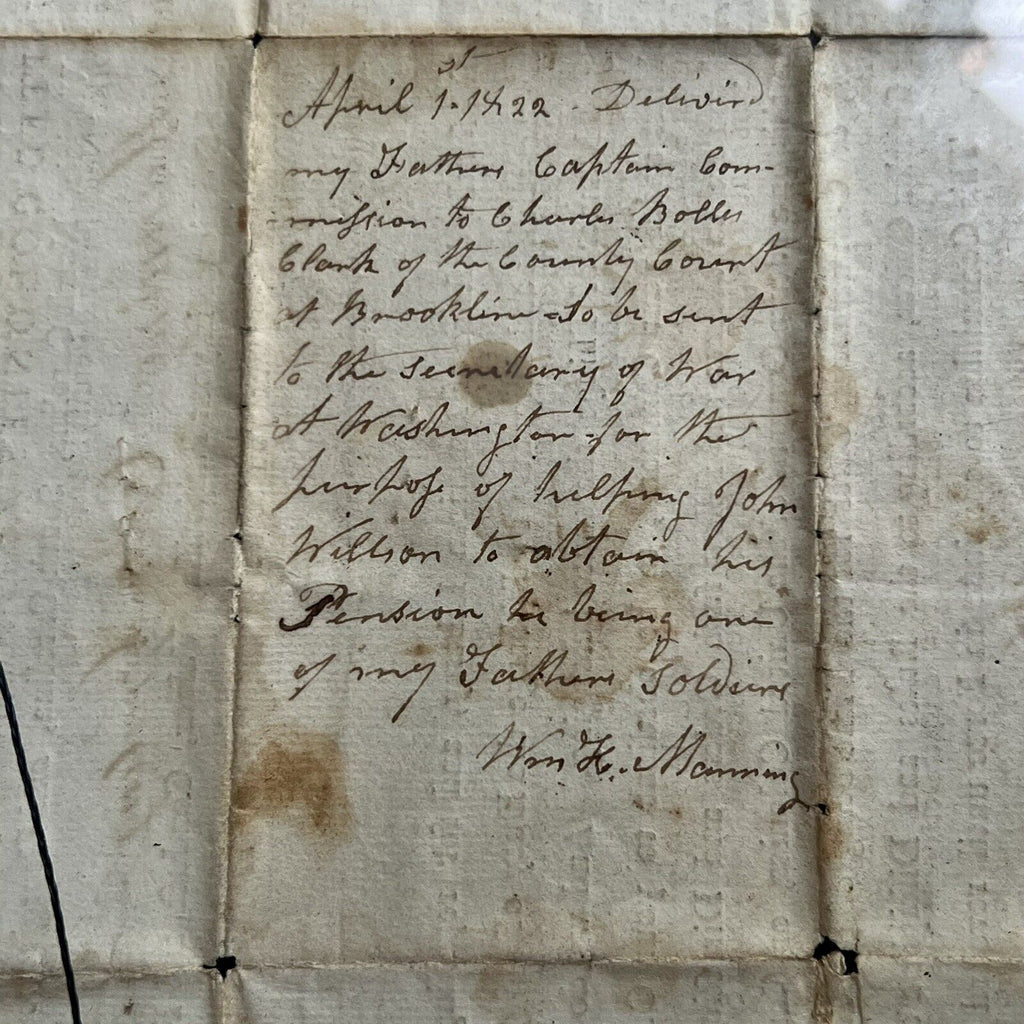 April 1st 1822. Delivird
my Fathers Captain Com-
-mission to Charles Bolles
Clark of the County Court
at Brookline - to be sent
to the secretary of War
At Washington - for the
purpose of helping John
Willson to obtain his
Pension he being one
of my Fathers Soldiers
Wm H. Manning